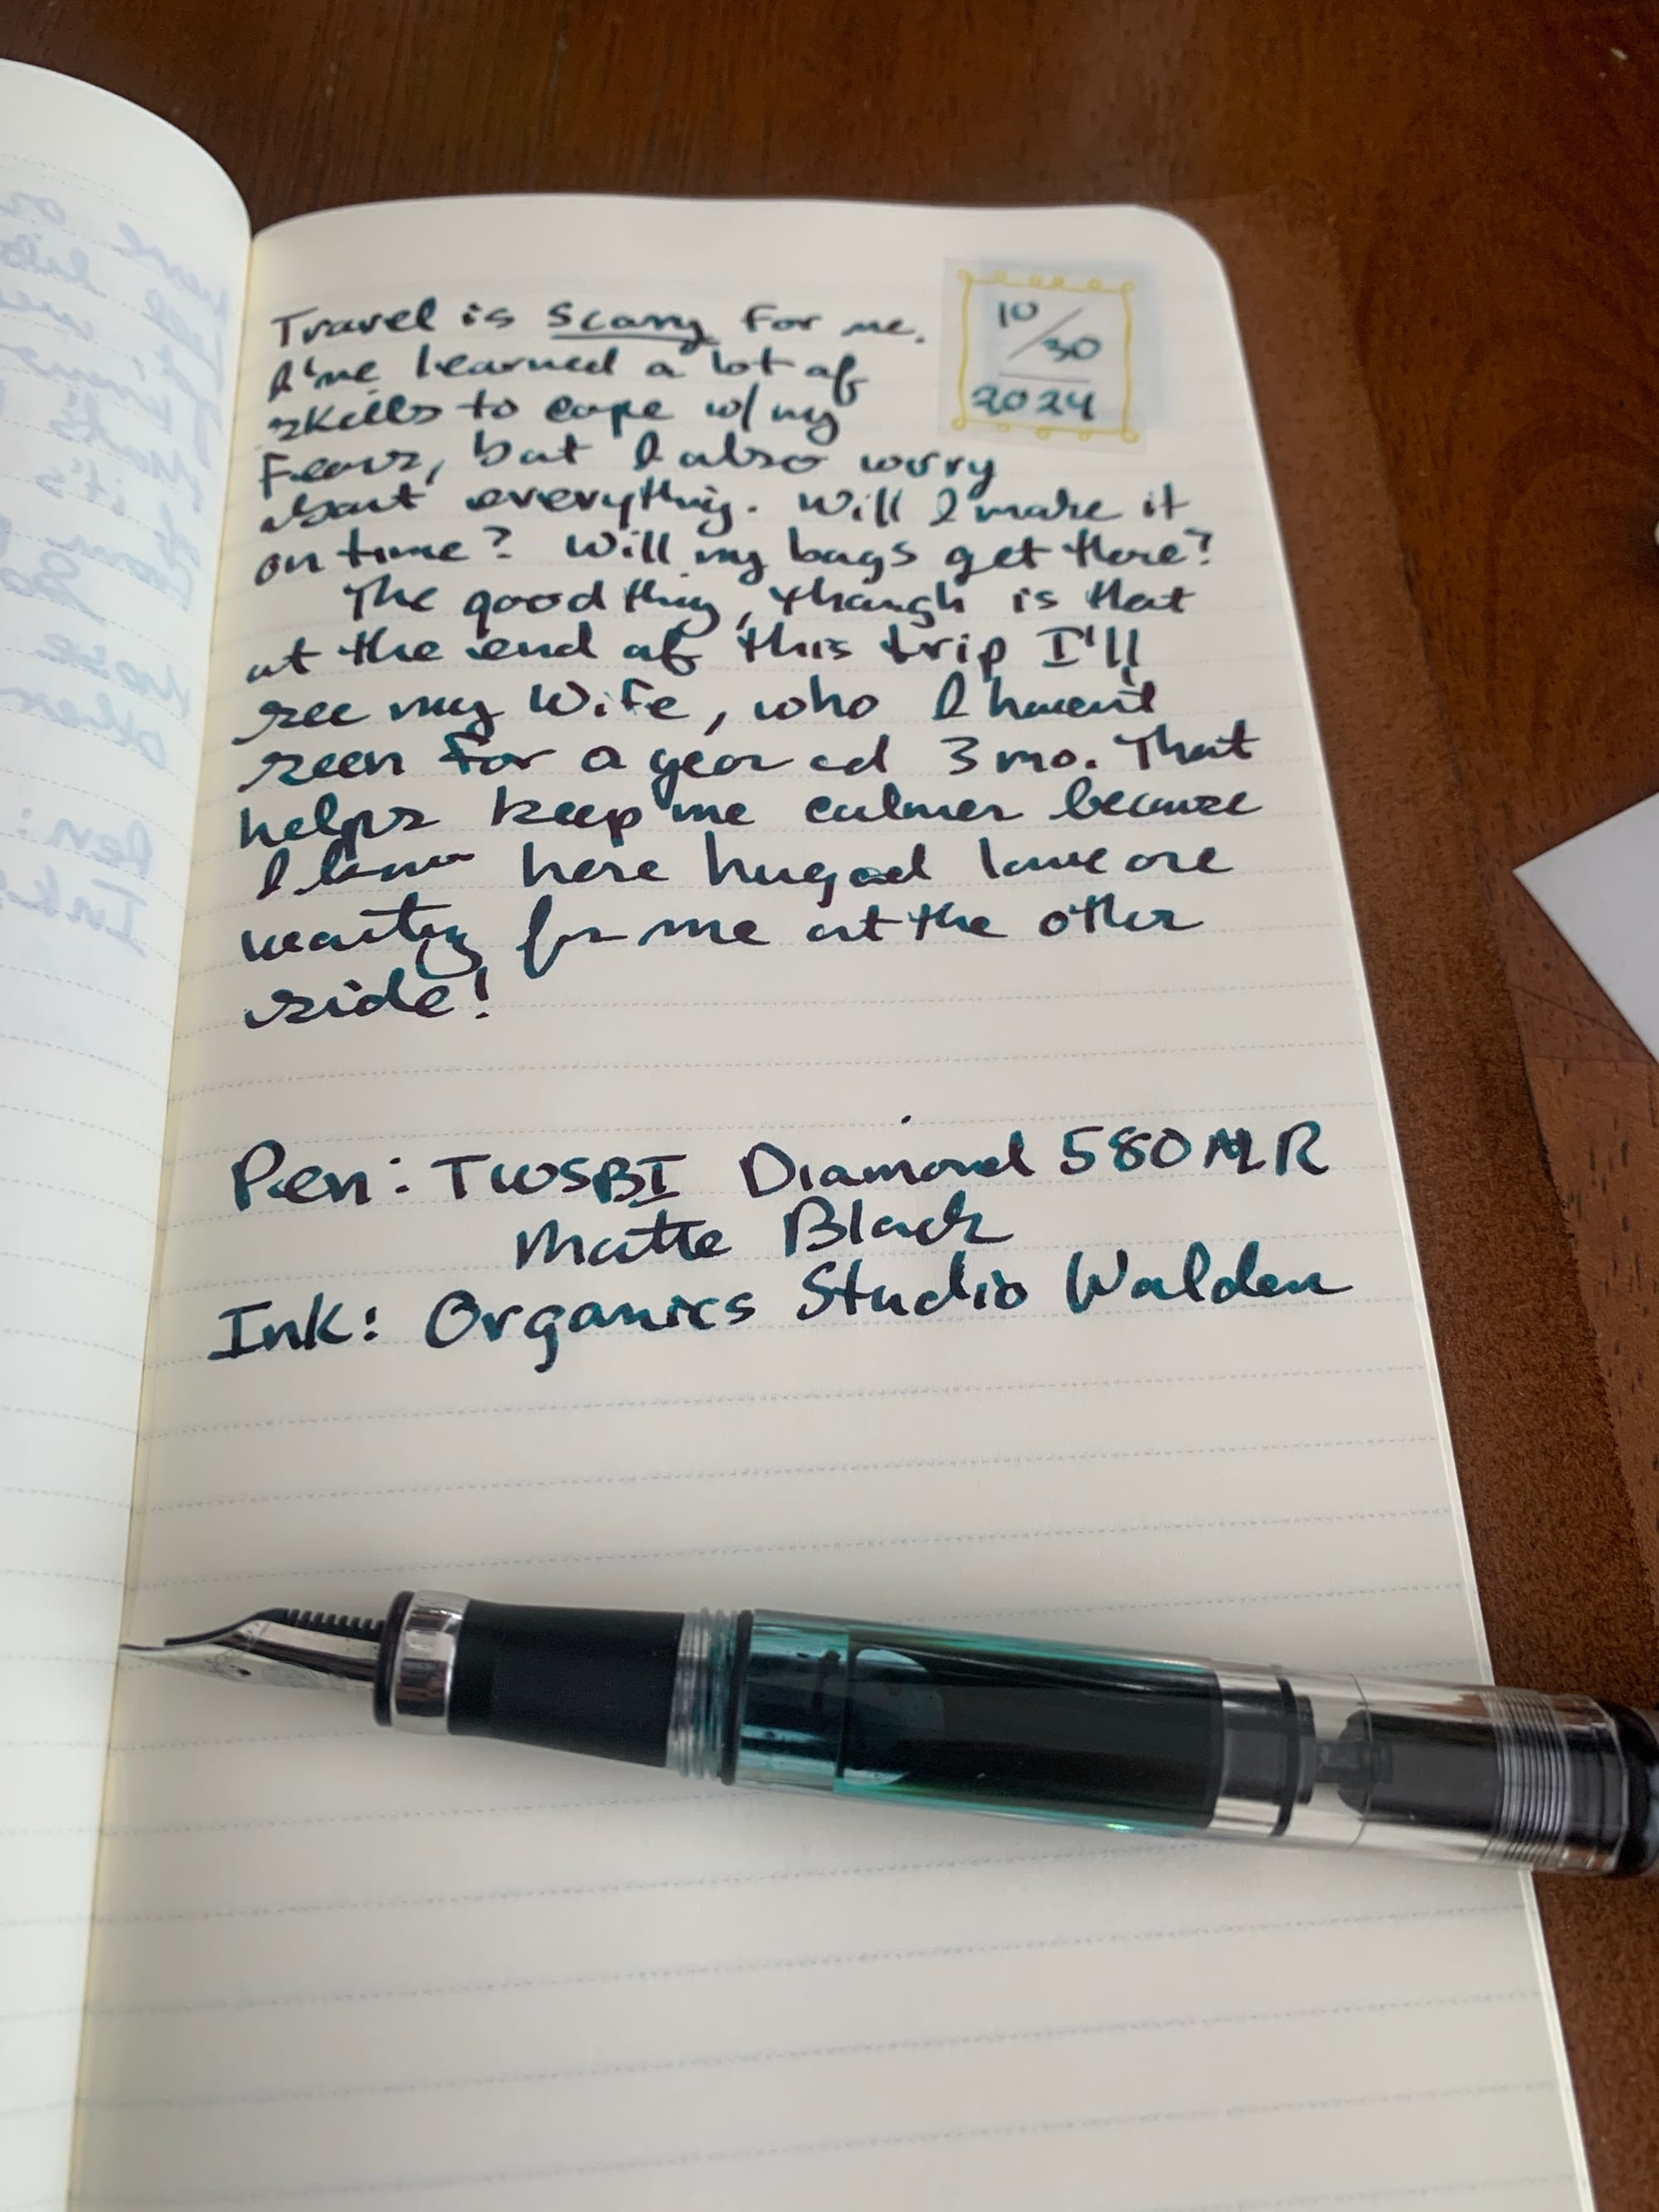 Travel is Scary for me.
I've learned a lot of
skills to cope w/ my
Fears, but I also worry
about everything. Will I make it
on time? Will my bags get there?
The good thing, though is that
at the end of this trip I'll
see my Wife, who I haven't
seen for a year ad 3 mo. That
helps keep me calmer because
I know here hug ad love are
waiting for me at the other
side!
10/30
2024
Pen: TWSBI Diamond 580 MR
Matte Black
Ink: Organics Studio Walden